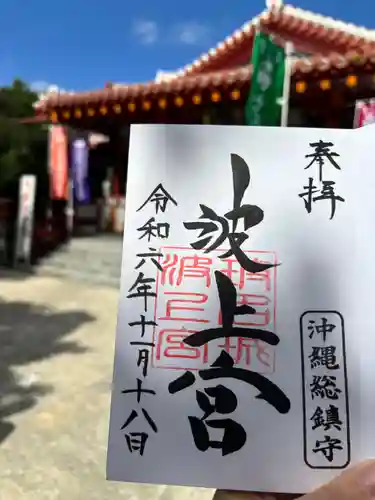 奉拝
波上宮
波上宮
令和六年十一月十八日
沖縄総鎮守